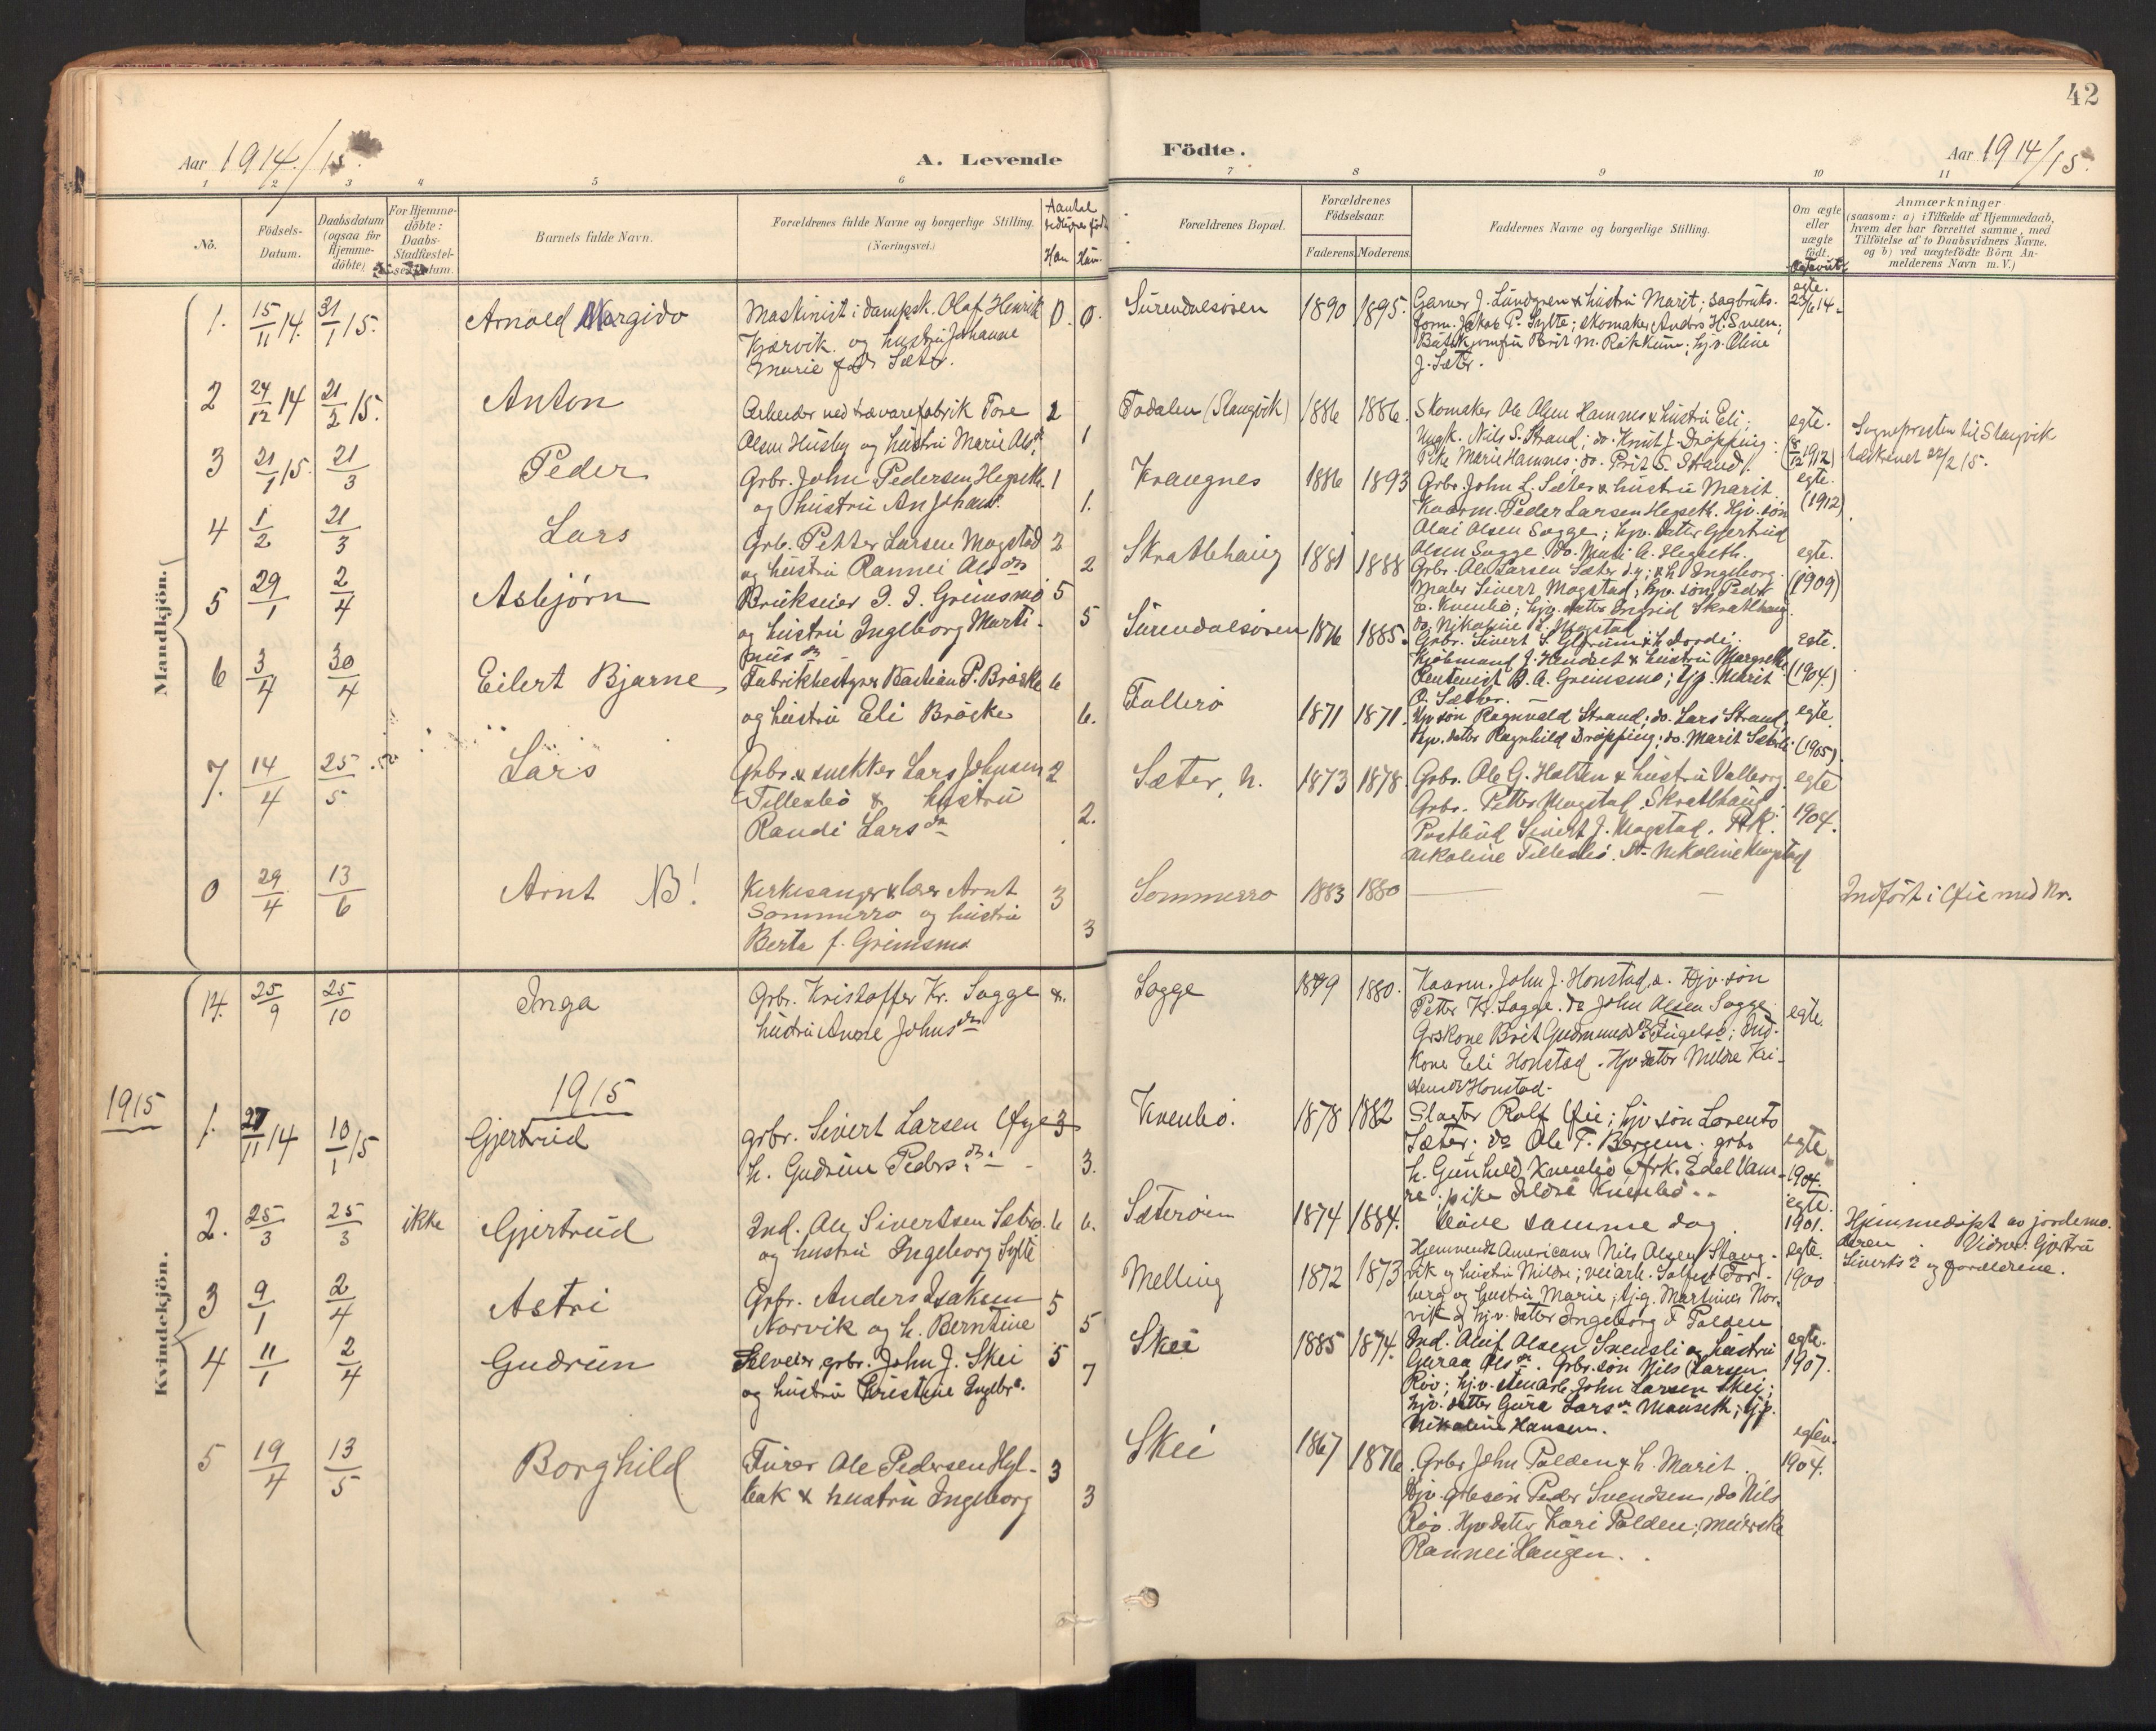 42
Aar 1914/15.
A. Levende
Födte.
Aar 1914/15.
1 2 3 4 5 6 7 8 9 10 11
No.
Födsels-
Datum.
Daabsdatum
(ogsaa for
Hjemme-
döbte)
For Hjemme-
döbte:
Daabs-
Stadfæstel-
Barnets fulde Navn.
Forældrenes fulde Navne og borgerlige Stilling.
(Næringsvei.)
Antal
Han Kun.
Forældrenes Bopæl.
Forældrenes
Födselsaar.
Faderens. Moderens.
Faddernes Navne og borgerlige Stilling.
Om ægte
eller
uægte
födt.
Anmærkninger
(saasom: a) i Tilfælde af Hjemmedaab,
hvem der har forrettet samme, med
Tilföielse af to Daabsvidners Navne.
og b) ved uægtefödte Börn An-
melderens Navn m. V.)
Mandkjön.
1. 15/11 14. 31/1 15. Arnold Margido
Maskinist i dampsk. Olaf Henrik 0. 0.
Kjærvik og hustru Johanne
Marie født Sæter.
Surendalsøren 1890 1895.
Garver J. Lundgren & hustru Marit; sagbruks-
form. Jakob P. Sylte; skomaker Anders H. Svien;
Brit M. Røkkum; hjv. Oline
J. Sæter.
egte.
23/6 14.
2 24/12 14 21/2 15. Anton
Arbeider ved trævarefabrik Tore 2
Olsen Husby og hustru Marie Olsdr. 1
Todalen (Stangvik) 1886 1886.
Skomaker Ole Olsen Hamnes & hustru Eli;
Ungk. Nils S. Strand; do. Knut J. Drøpping.
Pike Marie Hamnes; do. Brit S. Strand.
egte.
(8/12 1912)
Sogneprsten til Stangvik
tilskrevet 22/2 15.
3 21/1 15. 21/3 Peder
Grbr. John Pedersen Hegseth 1
og hustru An Johans. 1.
Krangnes 1886 1893
Grbr. John L. Sæter & hustru Marit
Kaarm. Peder Larsen Hegseth. Hjv. søn
Olai Olsen Sogge; hjv. datter Gjertrud
Olsen Sogge. do. Mari A. Hegseth.
egte.
(1912)
4 1/2 21/3 Lars
Grb. Petter Larsen Mogstad 2
og hustru Rannei Olsdtr 2
Skratlehaug 1881 1888
Grbr. Ole Larsen Sæter d.y; & h. Ingeborg.
Maler Sivert Mogstad; hjv. søn Peder
E. Kvenbø; hjv. datter Ingrid Skratlhaug.
do. Nikoline L. Mogstad
egte.
(1909)
5 29/1 2/4 Asbjørn
Brukseier I. I. Grimsmo 5
og hustru Ingeborg Marti- 5
nusdr
Surendalsøren 1876 1885.
Grbr. Sivert S. Glærum & h. Dordi;
Kjøbmand J. Hendset & hustru Margrethe
Rentenist B. A. Grimsmo; tjp. Marit
O. Sæther.
egte.
(1904)
6 3/4 30/4 Eilert Bjarne
Fabrikbestyrer Bastian P. Brøske 6
og hustru Eli Brøske 6.
Follerø 1871 1871.
Hjv søn Ragnvald Strand; do. Lars Strand,
Hjv. datter Ragnhild Drøpping; do. Marit Sæbø.
egte.
(1905)
7. 14/4 25/5 Lars
Grbr. & snekker Lars Johnsen 2
Tellesbø & hustru
Randi Larsdr 2.
Sæter, n. 1873 1878.
Grbr. Ole G. Holten & hustru Valborg.
Grbr. Petter Mogstad Skratlhaug.
Postbud Sivert J. Mogstad. Pk.
Nikoline Tellesbø. Do Nikoline Mogstad
egte
1904.
0 29/4 13/6 Arnt NB!
Kirkesanger & lærer Arnt 3
Sommerro og hustru
Berta f. Grimsmo 3
Sommerro 1883 1880
Indført i Øie med Nr.
Kvindekjön.
14. 25/9 25/10 Inga
Grbr. Kristoffer Kr. Sogge &.
hustru Anne Johnsdtr
Sogge 1879 1880.
Kaarm. John J. Honstad, a. Hjv. søn
Petter Kr. Sogge. do John Olsen Sogge
Grskone Brit Gudmundsdr Fugelsø; Ind-
kone Eli Honstad. Hjv datter Mildre Kri-
stensdr Honstad.
egte.
1915
1915
1. 27/11 14 10/1 15 Gjertrud
grbr. Sivert Larsen Øye 3
h. Gudrun Pedersdtr. 3.
Kvenbø. 1878 1882
Slagter Rolf Øie; hjv søn Lorents
Sæter; do Ole T. Bergem; grbr
h. Gunhild Kvenbø Ark. Edel Vam-
re; pike Ildri Kvenbø..
egte
1904.
2. 25/3 25/3 ikke Gjertrud
Ind. Ole Sivertsen Sæbø. 6 6.
og hustru Ingeborg Sylte
Sæterøien 1874 1884.
døde samme dag
egte.
1901.
Hjemmedøpt av jordemo-
deren. Vidner: Gjertru
Siverts og forældrene.
3 9/1 2/4 Astri
Grbr. Anders Isaksen 5
Norvik og h. Berntine 5
Melling 1872 1873
Hjemvendt Amerikaner Nils Olsen Stang-
vik og hustru Mildri; veiarb. Solfest Tor-
berg og hustru Marie; tj.g. Martinus Nor-
vik & hj.v. datter Ingeborg F Polden
egte.
1900
4 11/1 2/4 Gudrun
Selveier, grbr. John J. Skei 5
og hustru Kristine Ingebrs. 7
Skei 1885 1874.
Ind. Oluf Olsen Svensli og hustru
Guraa Olsdr. Grbr. søn Nils Larsen
Røv; hj.v. stenarb. John Larsen Skei;
hjv. datter Gura Larsdr Mauseth; tjp.
Nikoline Hansen.
egte.
1907.
5 19/4 13/5 Borghild
Furer Ole Pedersen Hyl- 3
bak & hustru Ingeborg 3
Skei 1867 1876
Grbr John Polden & h. Marit.
Hjv. grbrsøn Peder Svendsen, do Nils
Røv. Hjv datter Kari Polden; meierske
Rannei Haugen.
egte.
1904.